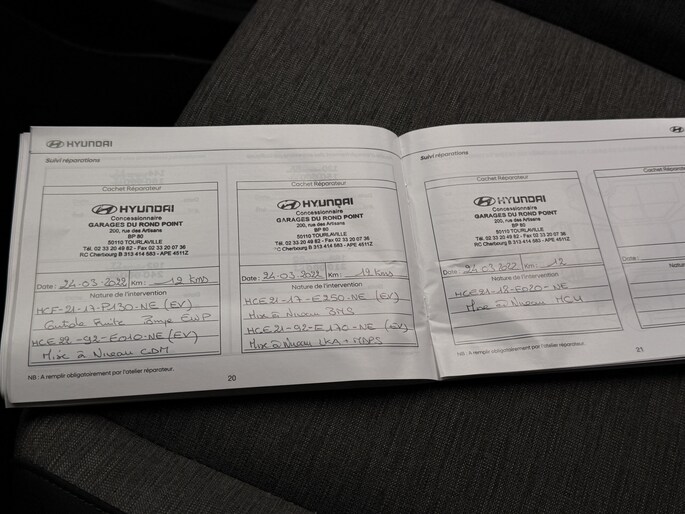 HYUNDAI
Suivi réparations
Cachet Réparateur
HYUNDAI
Concessionnaire
GARAGES DU ROND POINT
200, rue des Artisans
BP 80
50110 TOURLAVILLE
Tél. 02 33 20 49 62 - Fax 02 33 20 07 36
RC Cherbourg B 313 414 583 - APE 4511Z
Date : 24-03-2022 Km : 12 Kms
Nature de l'intervention
HCF-21-17-P130-NE (EV)
Controle Pompe EWP
HCE22-92-E010-NE (EV)
Mise à Niveau CDM
Cachet Réparateur
HYUNDAI
Concessionnaire
GARAGES DU ROND POINT
200, rue des Artisans
BP 80
50110 TOURLAVILLE
Tél. 02 33 20 49 62 - Fax 02 33 20 07 36
RC Cherbourg B 313 414 583 - APE 4511Z
Date : 24-03-2022 Km : 12 Kms
Nature de l'intervention
HCE21-17-E250-NE (EV)
Mise à Niveau BMS
HCE21-92-E170-NE (EV)
Mise à Niveau LKA +
NB : A remplir obligatoirement par l'atelier réparateur.
20
Suivi réparations
Cachet Réparateur
HYUNDAI
Concessionnaire
GARAGES DU ROND POINT
200, rue des Artisans
BP 80
50110 TOURLAVILLE
Tél. 02 33 20 49 62 - Fax 02 33 20 07 36
RC Cherbourg B 313 414 583 - APE 4511Z
Date : 24-03-2022 Km : 12
Nature de l'intervention
HCE21-18-E020-NE
Mise à Niveau MCU
Date :
NB : A remplir obligatoirement par l'atelier réparateur.
21